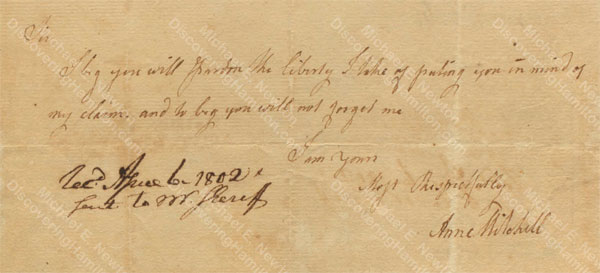 Sir
I beg you will Pardon the liberty I take of puting you in mind of
my claim. and to beg you will not forget me
I am Yours
Most Respectfully
Anne Mitchell
Recd. April 6 1802
Sent to Mr.